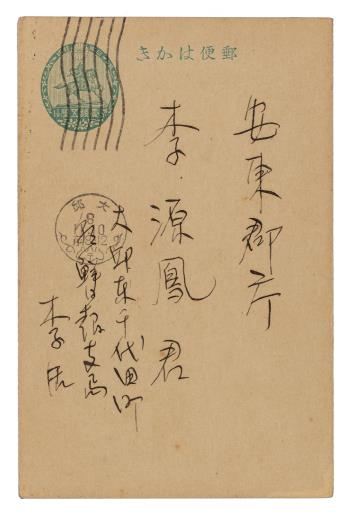 郵便はかき
安東郡庁
李源鳳君
大邱
大邱東千代田町
朝鮮日報支局
李活